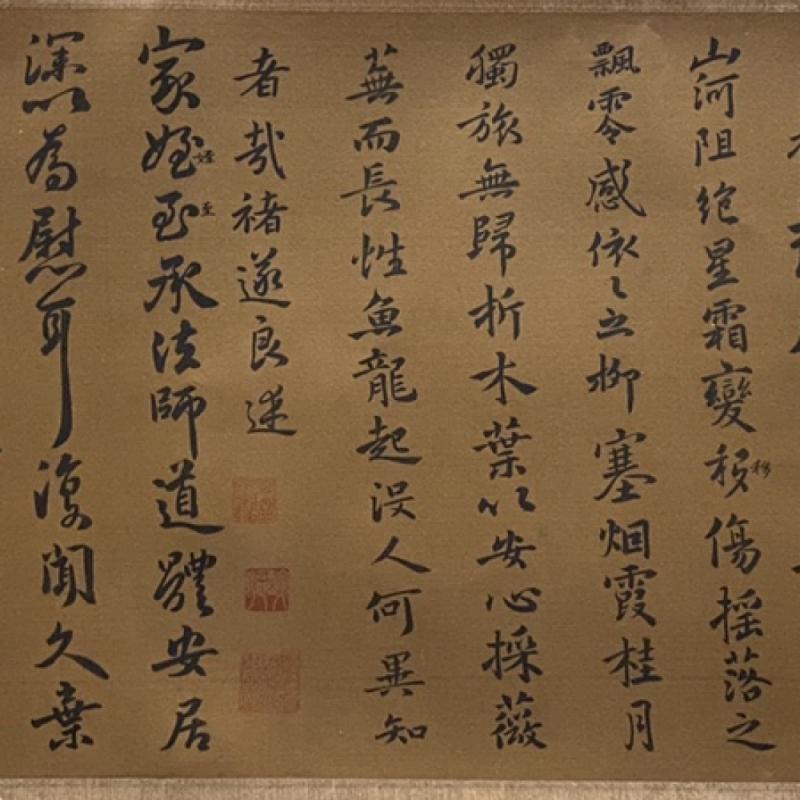 山河阻絕星霜變移移傷搖落之
飄零感依々之柳塞烟霞桂月
獨旅無歸折木葉以安心採薇
蕪而長性魚龍起没人何異知
者哉褚遂良述
家姪姪至至承法師道體安居
深以為慰耳復聞久棄